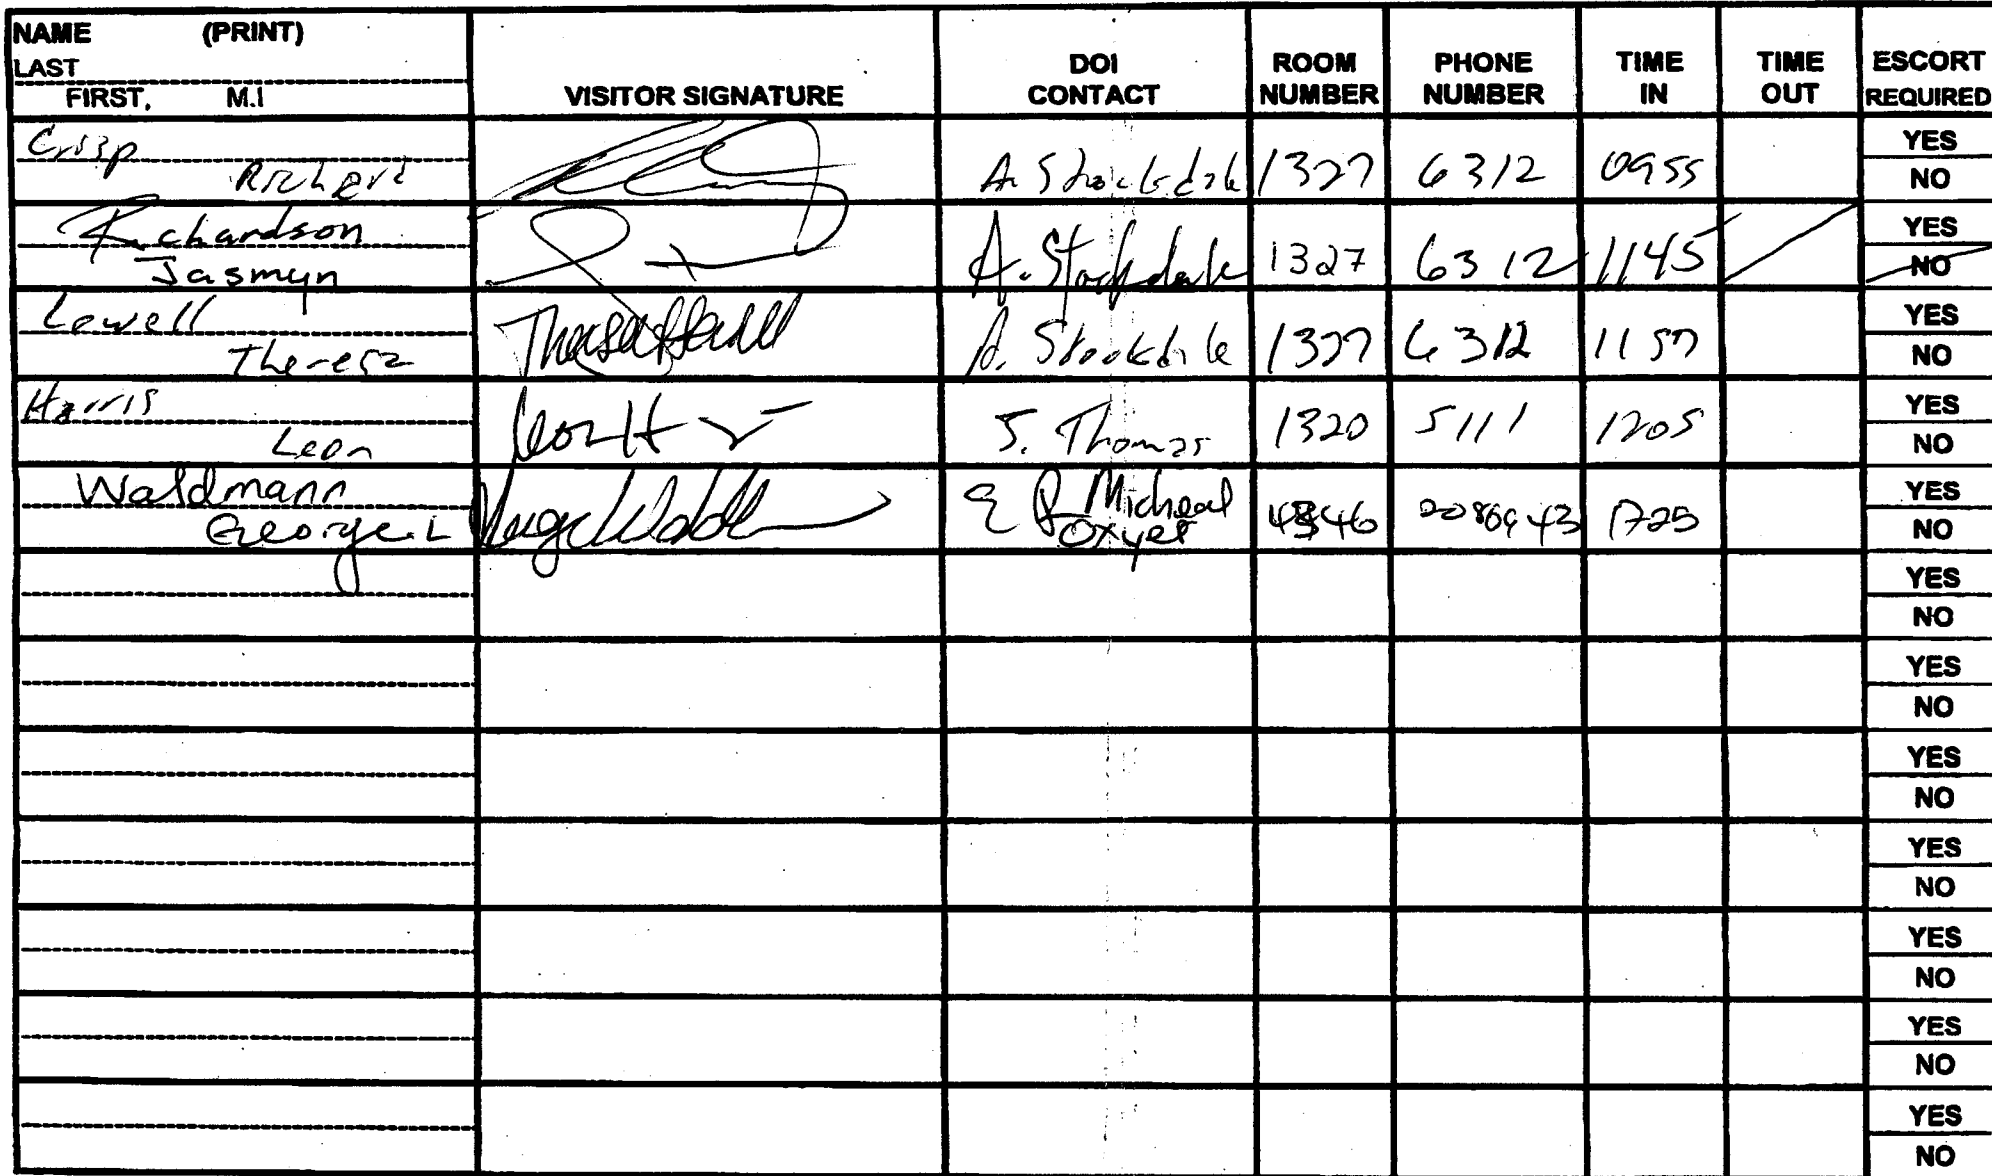 NAME (PRINT)
LAST
FIRST, M.I
VISITOR SIGNATURE
DOI
CONTACT
ROOM
NUMBER
PHONE
NUMBER
TIME
IN
TIME
OUT
ESCORT
REQUIRED
Crisp
Richard
A. Stockdale 1327 6312 0955
YES
NO
Richardson
Jasmyn
A. Stockdale 1327 6312 1145
YES
NO
Lewell
Theresa
A. Stockdale 1327 6312 1157
YES
NO
Harris
Leon
S. Thomas 1320 5111 1205
YES
NO
Waldmann
George. L
Micheal 2086943 1725
YES
NO
YES
NO
YES
NO
YES
NO
YES
NO
YES
NO
YES
NO
YES
NO